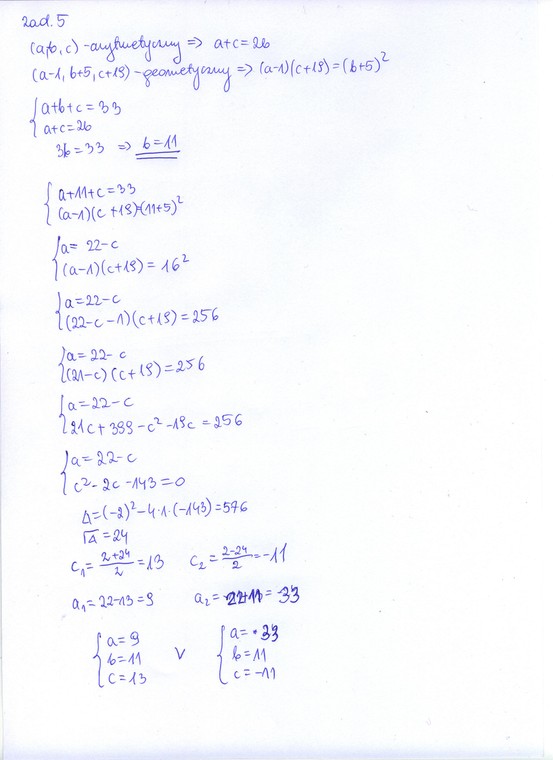 zad. 5
(a,b,c) - arytmetyczny => a+c=2b
(a-1, b+5, c+19) - geometryczny => (a-1)(c+19)=(b+5)²
{a+b+c=33
a+c=2b
3b=33 => b=11
{a+11+c=33
(a-1)(c+19)=(11+5)²
{a= 22-c
(a-1)(c+19) = 16²
{a=22-c
(22-c-1)(c+19)=256
{a=22-c
(21-c)(c+19)=256
{a=22-c
21c+399-c²-19c=256
{a=22-c
c²-2c-143=0
Δ=(-2)²-4·1·(-143)=576
√Δ=24
c₁= (2+24)/2 =13 c₂= (2-24)/2 =-11
a₁=22-13=9 a₂= 22+11= 33
{a=9 ∨ {a= 33
b=11 b=11
c=13 c=-11